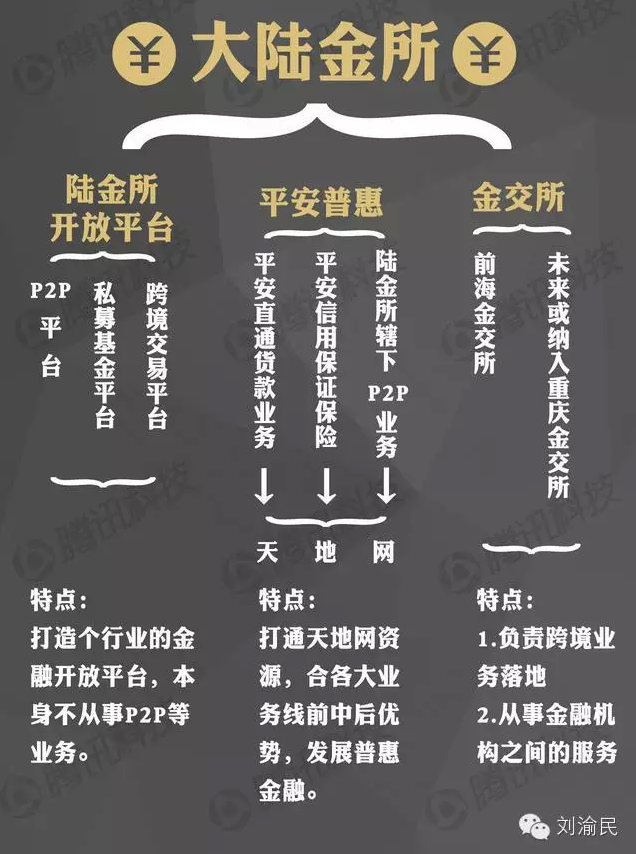 ¥ 大陆金所 ¥
陆金所
开放平台
P2P平台
私募基金平台
跨境交易平台
特点：
打造个行业的金
融开放平台，本
身不从事P2P等
业务。
平安普惠
平安直通贷款业务
平安信用保证保险
陆金所辖下P2P业务
天 地 网
特点：
打通天地网资
源，合各大业
务线前中后优
势，发展普惠
金融。
金交所
前海金交所
未来或纳入重庆金交所
特点：
1.负责跨境业
务落地
2.从事金融机
构之间的服务
刘渝民
腾讯科技